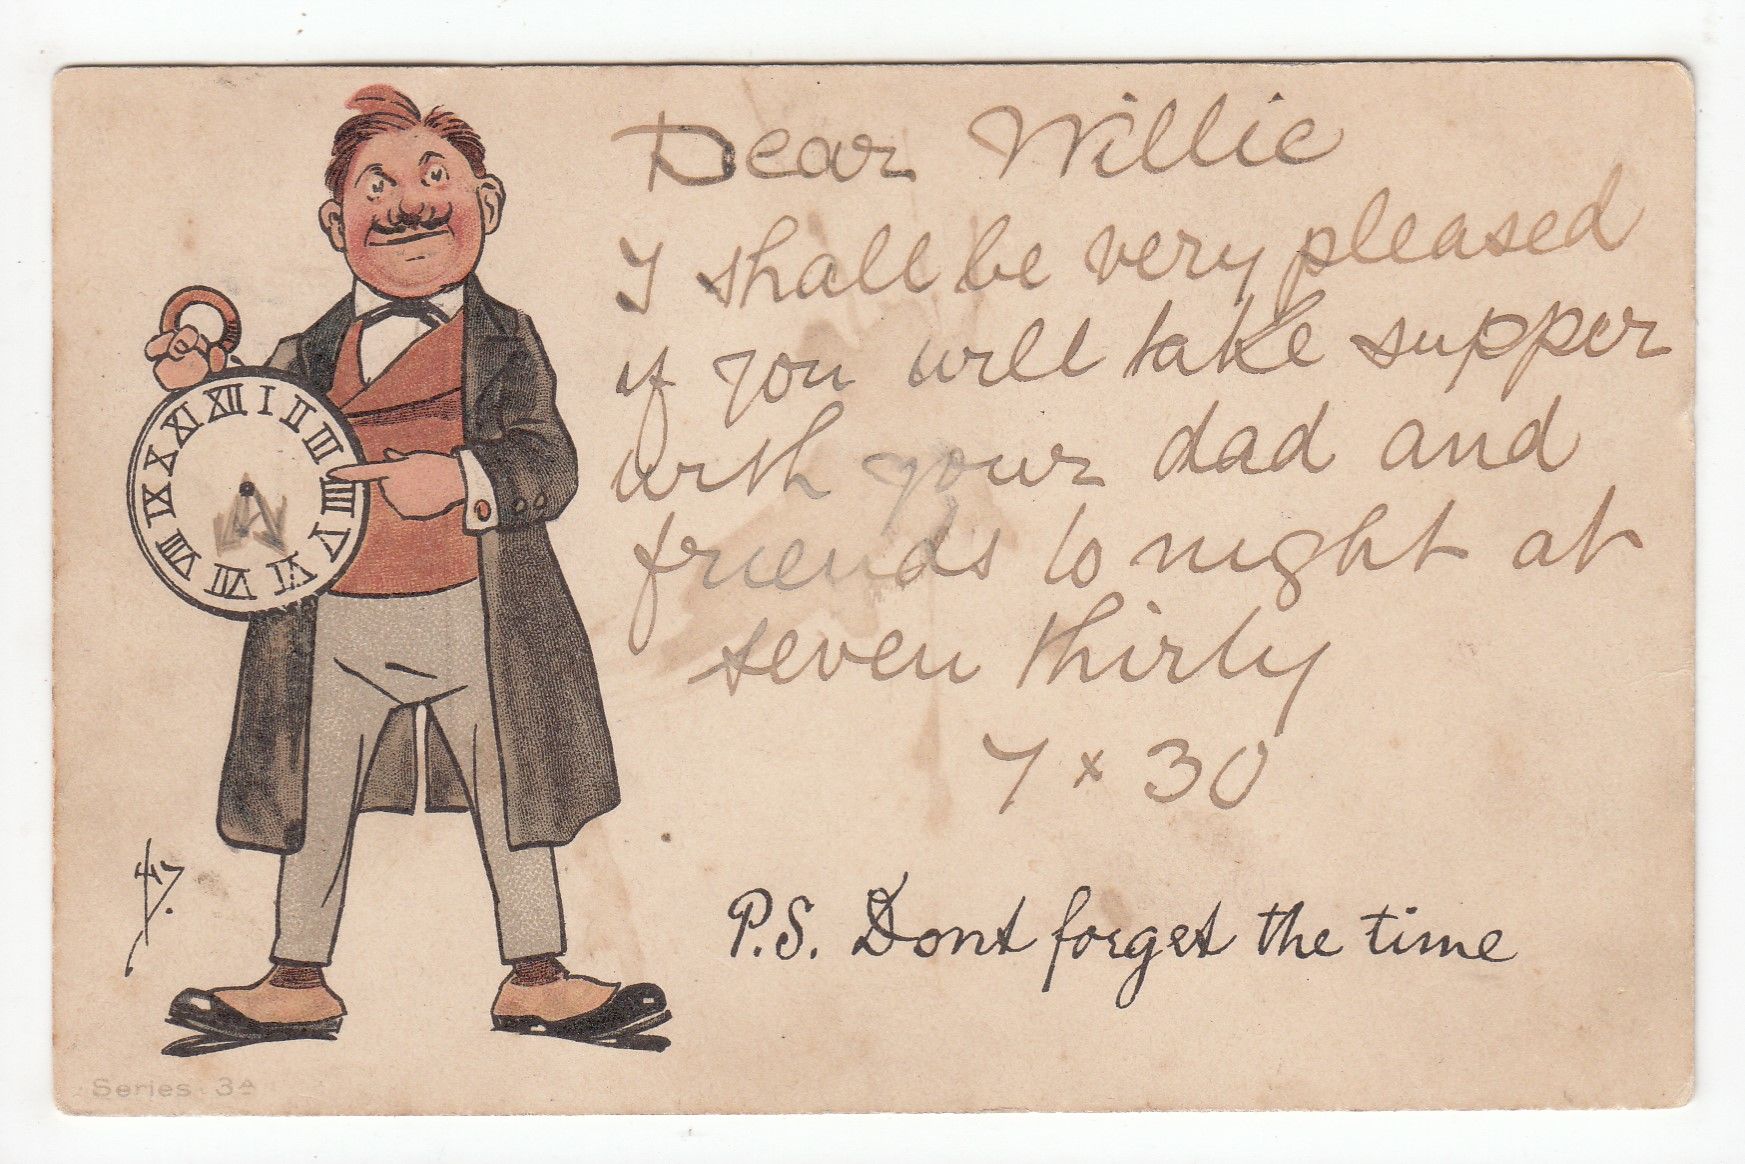 Dear Willie
I shall be very pleased
if you will take supper
with your dad and
friends to night at
seven thirty
7 x 30
P.S. Dont forget the time
XII I II III IIII V VI VII VIII IX X XI
Series 3A